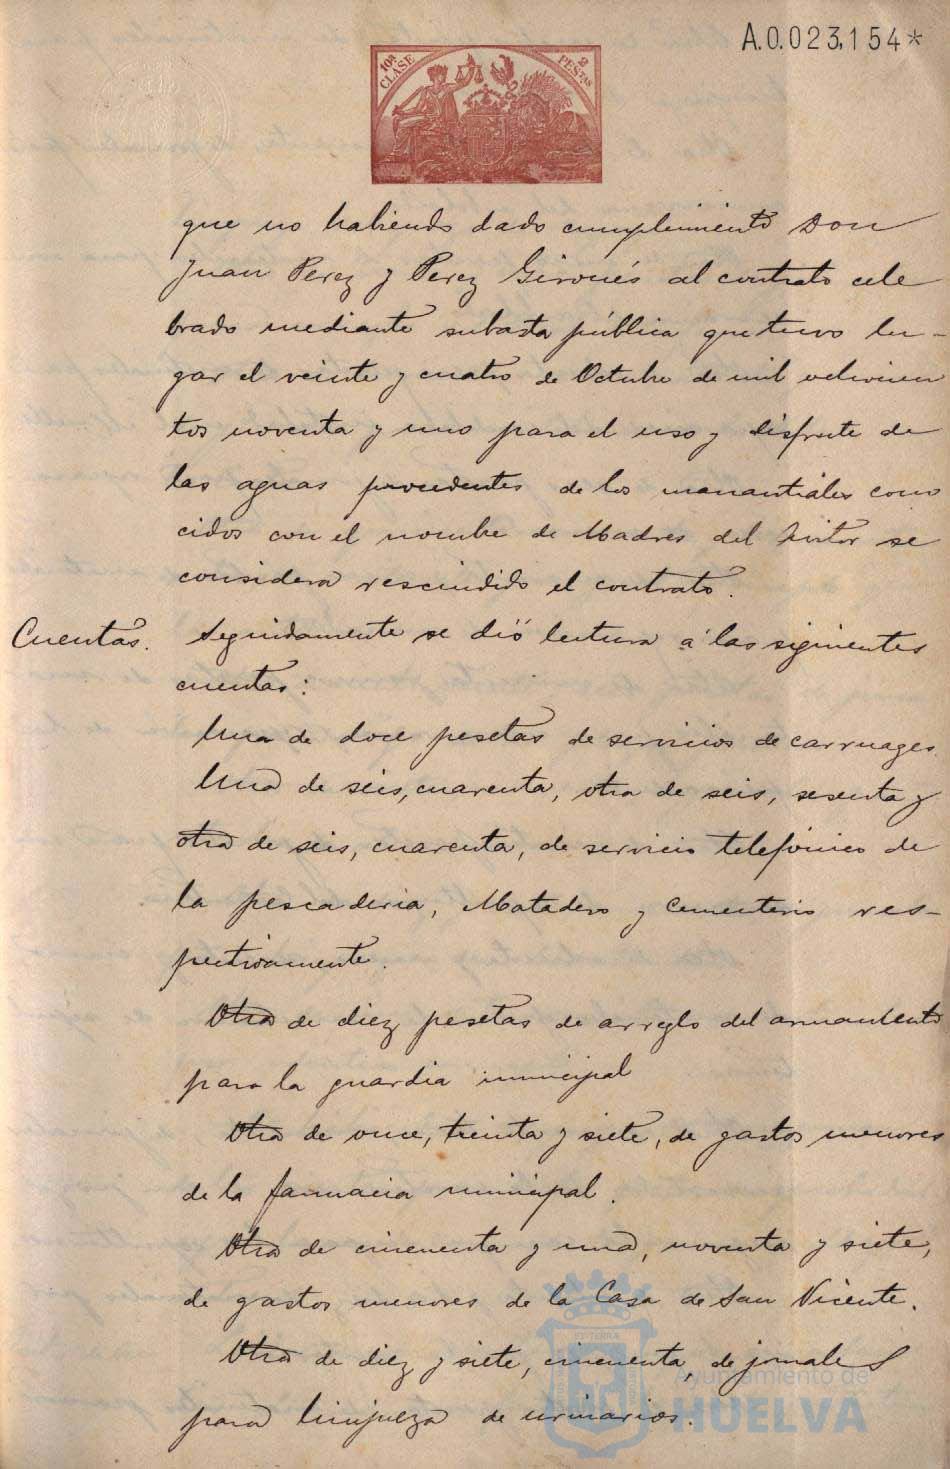 A.0.023,154*
10ª CLASE
2 PESTAS
que no habiendo dado cumplimiento Don
Juan Perez y Perez Gironés al contrato cele
brado mediante subasta pública que tuvo lu-
gar el veinte y cuatro de Octubre de mil ochocien
tos noventa y uno para el uso y disfrute de
las aguas procedentes de los manantiales cono
cidos con el nombre de Madres del Avitor se
considera rescindido el contrato.
Cuentas. Seguidamente se dió lectura á las siguientes
cuentas:
Una de doce pesetas de servicios de carruages.
Una de seis, cuarenta, otra de seis, sesenta y
otra de seis, cuarenta, de servicio telefónico de
la pescaderia, Matadero y Cementerio res-
pectivamente.
Otra de diez pesetas de arreglo del armamento
para la guardia municipal
Otra de once, treinta y siete, de gastos menores
de la farmacia municipal.
Otra de cincuenta y una, noventa y siete,
de gastos menores de la Casa de San Vicente.
Otra de diez y siete, cincuenta, de jornales
para limpieza de urinarios.
Ayuntamiento de
HUELVA